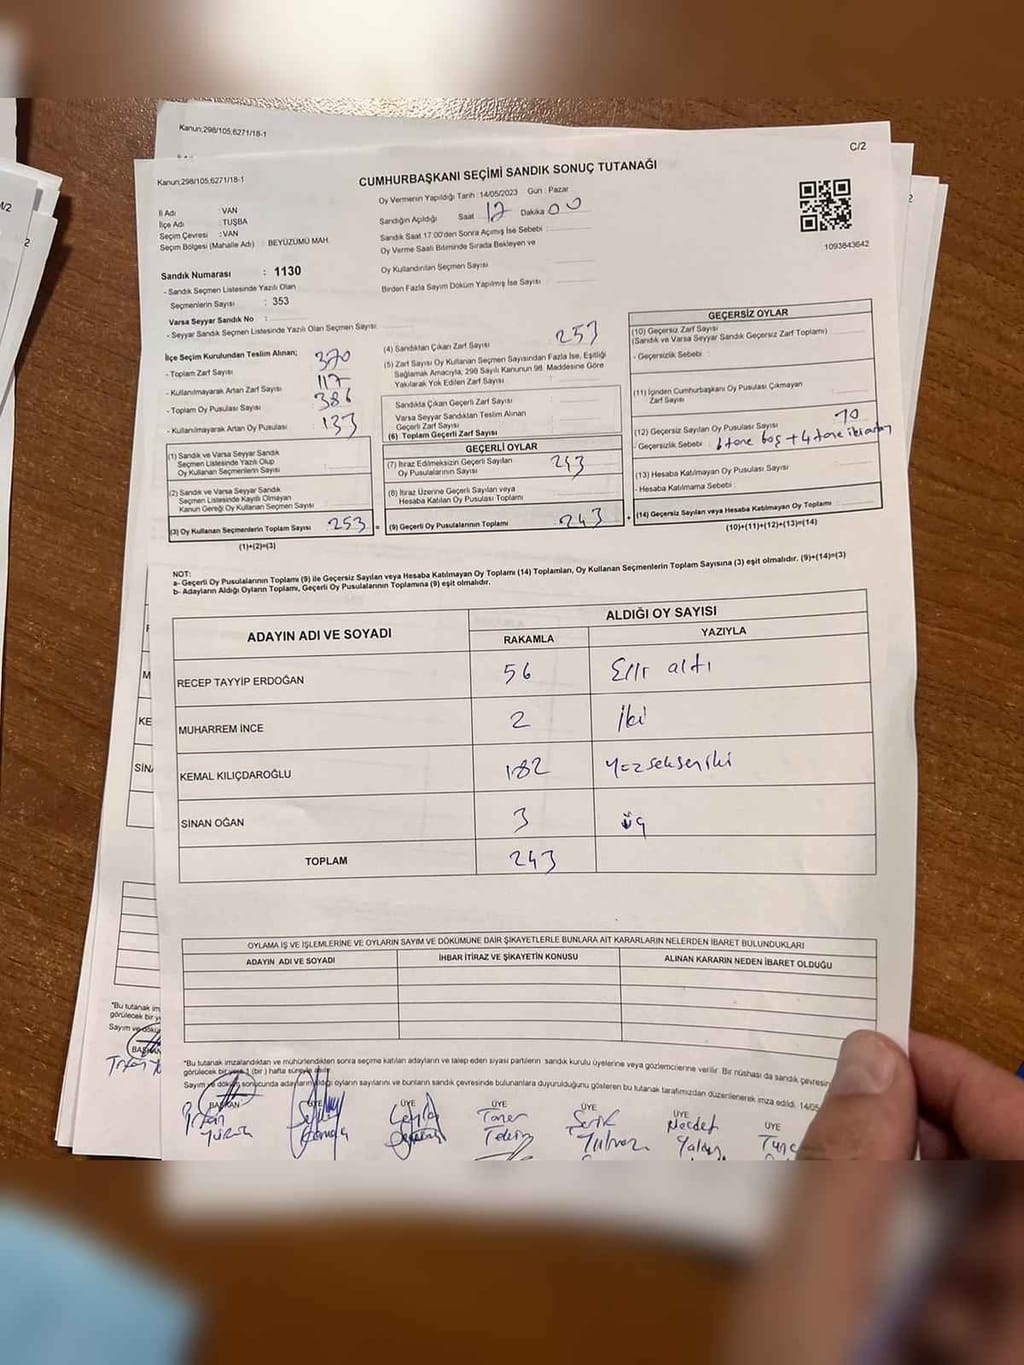 Kanun;298/105;6271/18-1
C/2
Kanun;298/105;6271/18-1
CUMHURBAŞKANI SEÇİMİ SANDIK SONUÇ TUTANAĞI
Oy Vermenin Yapıldığı Tarih : 14/05/2023 Gün : Pazar
İl Adı : VAN
İlçe Adı : TUŞBA
Seçim Çevresi : VAN
Seçim Bölgesi (Mahalle Adı) BEYÜZÜMÜ MAH.
Sandığın Açıldığı Saat 17 Dakika 00
Sandık Saat 17:00'den Sonra Açılmış İse Sebebi :
Oy Verme Saati Bitiminde Sırada Bekleyen ve
Oy Kullandırılan Seçmen Sayısı
Birden Fazla Sayım Döküm Yapılmış İse Sayısı :
1093843642
Sandık Numarası : 1130
- Sandık Seçmen Listesinde Yazılı Olan
Seçmenlerin Sayısı : 353
Varsa Seyyar Sandık No :
- Seyyar Sandık Seçmen Listesinde Yazılı Olan Seçmen Sayısı:
İlçe Seçim Kurulundan Teslim Alınan;
- Toplam Zarf Sayısı 370
- Kullanılmayarak Artan Zarf Sayısı 117
- Toplam Oy Pusulası Sayısı 386
- Kullanılmayarak Artan Oy Pusulası 133
(1) Sandık ve Varsa Seyyar Sandık
Seçmen Listesinde Yazılı Olup
Oy Kullanan Seçmenlerin Sayısı
(2) Sandık ve Varsa Seyyar Sandık
Seçmen Listesinde Kayıtlı Olmayan
Kanun Gereği Oy Kullanan Seçmen Sayısı
(3) Oy Kullanan Seçmenlerin Toplam Sayısı 253 =
(1)+(2)=(3)
(4) Sandıktan Çıkan Zarf Sayısı 253
(5) Zarf Sayısı Oy Kullanan Seçmen Sayısından Fazla İse, Eşitliği
Sağlamak Amacıyla; 298 Sayılı Kanunun 98. Maddesine Göre
Yakılarak Yok Edilen Zarf Sayısı
Sandıkta Çıkan Geçerli Zarf Sayısı
Varsa Seyyar Sandıktan Teslim Alınan
Geçerli Zarf Sayısı
(6) Toplam Geçerli Zarf Sayısı
GEÇERLİ OYLAR
(7) İtiraz Edilmeksizin Geçerli Sayılan
Oy Pusulalarının Sayısı 243
(8) İtiraz Üzerine Geçerli Sayılan veya
Hesaba Katılan Oy Pusulası Toplamı
(9) Geçerli Oy Pusulalarının Toplamı 243 +
GEÇERSİZ OYLAR
(10) Geçersiz Zarf Sayısı
(Sandık ve Varsa Seyyar Sandık Geçersiz Zarf Toplamı)
- Geçersizlik Sebebi :
(11) İçinden Cumhurbaşkanı Oy Pusulası Çıkmayan
Zarf Sayısı
(12) Geçersiz Sayılan Oy Pusulası Sayısı 10
- Geçersizlik Sebebi : 6 tane boş + 4 tane
(13) Hesaba Katılmayan Oy Pusulası Sayısı
- Hesaba Katılmama Sebebi :
(14) Geçersiz Sayılan veya Hesaba Katılmayan Oy Toplamı
(10)+(11)+(12)+(13)=(14)
NOT:
a- Geçerli Oy Pusulalarının Toplamı (9) ile Geçersiz Sayılan veya Hesaba Katılmayan Oy Toplamı (14) Toplamları, Oy Kullanan Seçmenlerin Toplam Sayısına (3) eşit olmalıdır. (9)+(14)=(3)
b- Adayların Aldığı Oyların Toplamı, Geçerli Oy Pusulalarının Toplamına (9) eşit olmalıdır.
ADAYIN ADI VE SOYADI
ALDIĞI OY SAYISI
RAKAMLA YAZIYLA
RECEP TAYYİP ERDOĞAN 56 Elli altı
MUHARREM İNCE 2 İki
KEMAL KILIÇDAROĞLU 182 Yüzsekseniki
SİNAN OĞAN 3 üç
TOPLAM 243
OYLAMA İŞ VE İŞLEMLERİNE VE OYLARIN SAYIM VE DÖKÜMÜNE DAİR ŞİKAYETLERLE BUNLARA AİT KARARLARIN NELERDEN İBARET BULUNDUKLARI
ADAYIN ADI VE SOYADI İHBAR İTİRAZ VE ŞİKAYETİN KONUSU ALINAN KARARIN NEDEN İBARET OLDUĞU
*Bu tutanak imzalandıktan ve mühürlendikten sonra seçime katılan adayların ve talep eden siyasi partilerin sandık kurulu üyelerine veya gözlemcilerine verilir. Bir nüshası da sandık çevresin
görülecek bir yere 1 (bir) hafta süreyle asılır.
Sayım ve döküm sonucunda adayların aldığı oyların sayılarını ve bunların sandık çevresinde bulunanlara duyurulduğunu gösteren bu tutanak tarafımızdan düzenlenerek imza edildi. 14/05
BAŞKAN ÜYE ÜYE ÜYE ÜYE ÜYE ÜYE
Leyla Taner Necdet
Yalçın